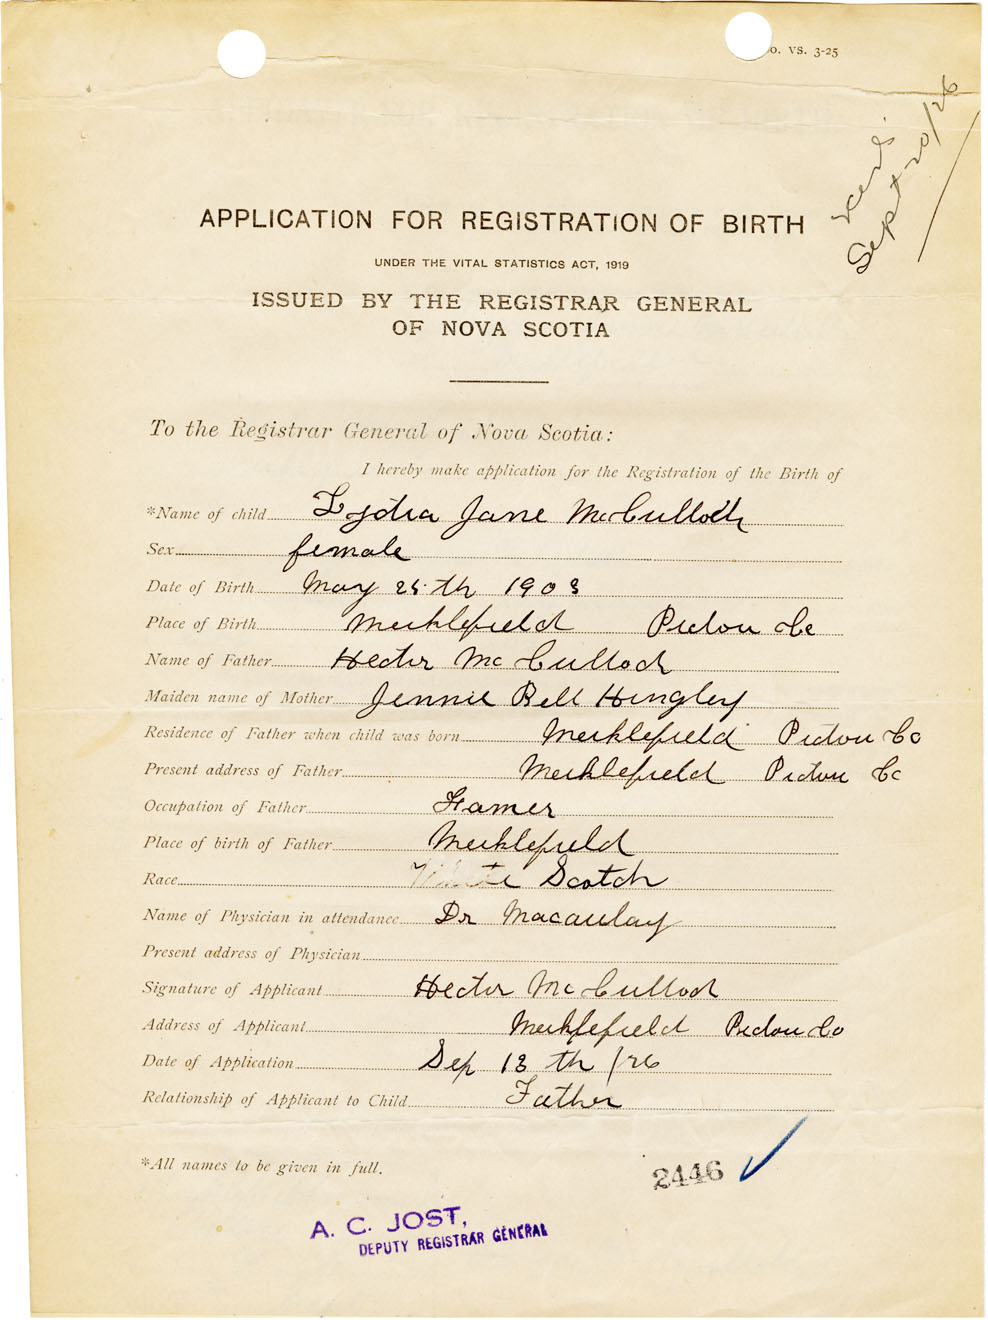 o. VS. 3-25
Sept 20/26
APPLICATION FOR REGISTRATION OF BIRTH
UNDER THE VITAL STATISTICS ACT, 1919
ISSUED BY THE REGISTRAR GENERAL
OF NOVA SCOTIA
To the Registrar General of Nova Scotia:
I hereby make application for the Registration of the Birth of
*Name of child Lydia Jane McCulloch
Sex female
Date of Birth May 25th 1903
Place of Birth Meiklefield Pictou Co
Name of Father Hector McCulloch
Maiden name of Mother Jennie Bell Hingley
Residence of Father when child was born Meiklefield Pictou Co
Present address of Father Meiklefield Pictou Co
Occupation of Father Famer
Place of birth of Father Meiklefield
Race White Scotch
Name of Physician in attendance Dr Macaulay
Present address of Physician
Signature of Applicant Hector McCulloch
Address of Applicant Meiklefield Pictou Co
Date of Application Sep 13th /26
Relationship of Applicant to Child Father
*All names to be given in full.
2446
A. C. JOST,
DEPUTY REGISTRAR GENERAL